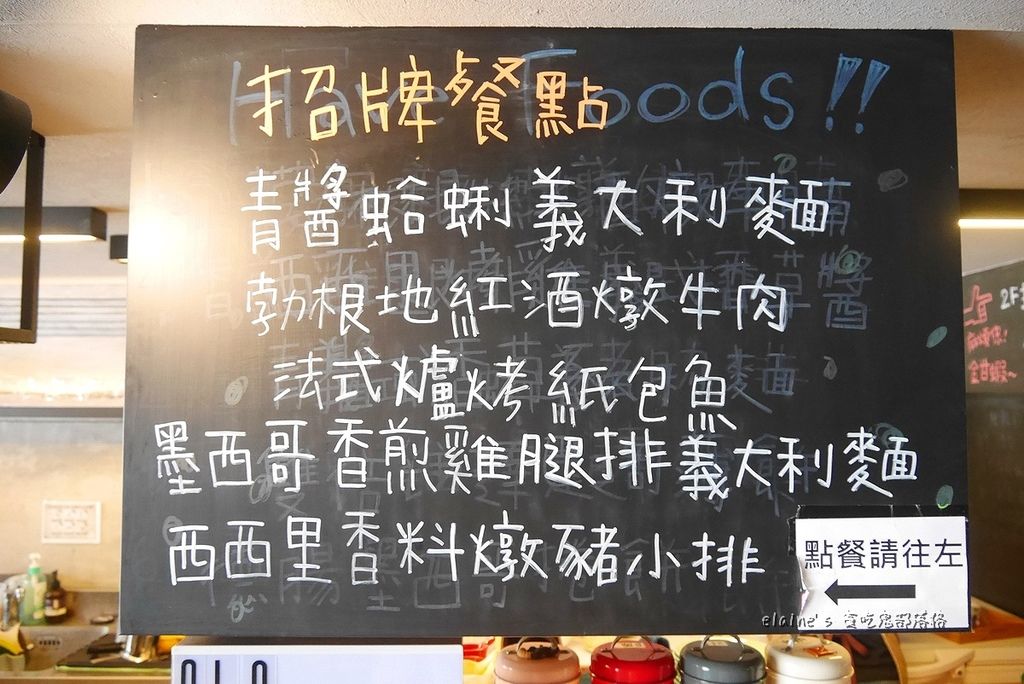 招牌餐點
青醬蛤蜊義大利麵
勃根地紅酒燉牛肉
法式爐烤紙包魚
墨西哥香煎雞腿排義大利麵
西西里香料燉豬小排
點餐請往左
elaine's 貪吃鬼部落格
2F